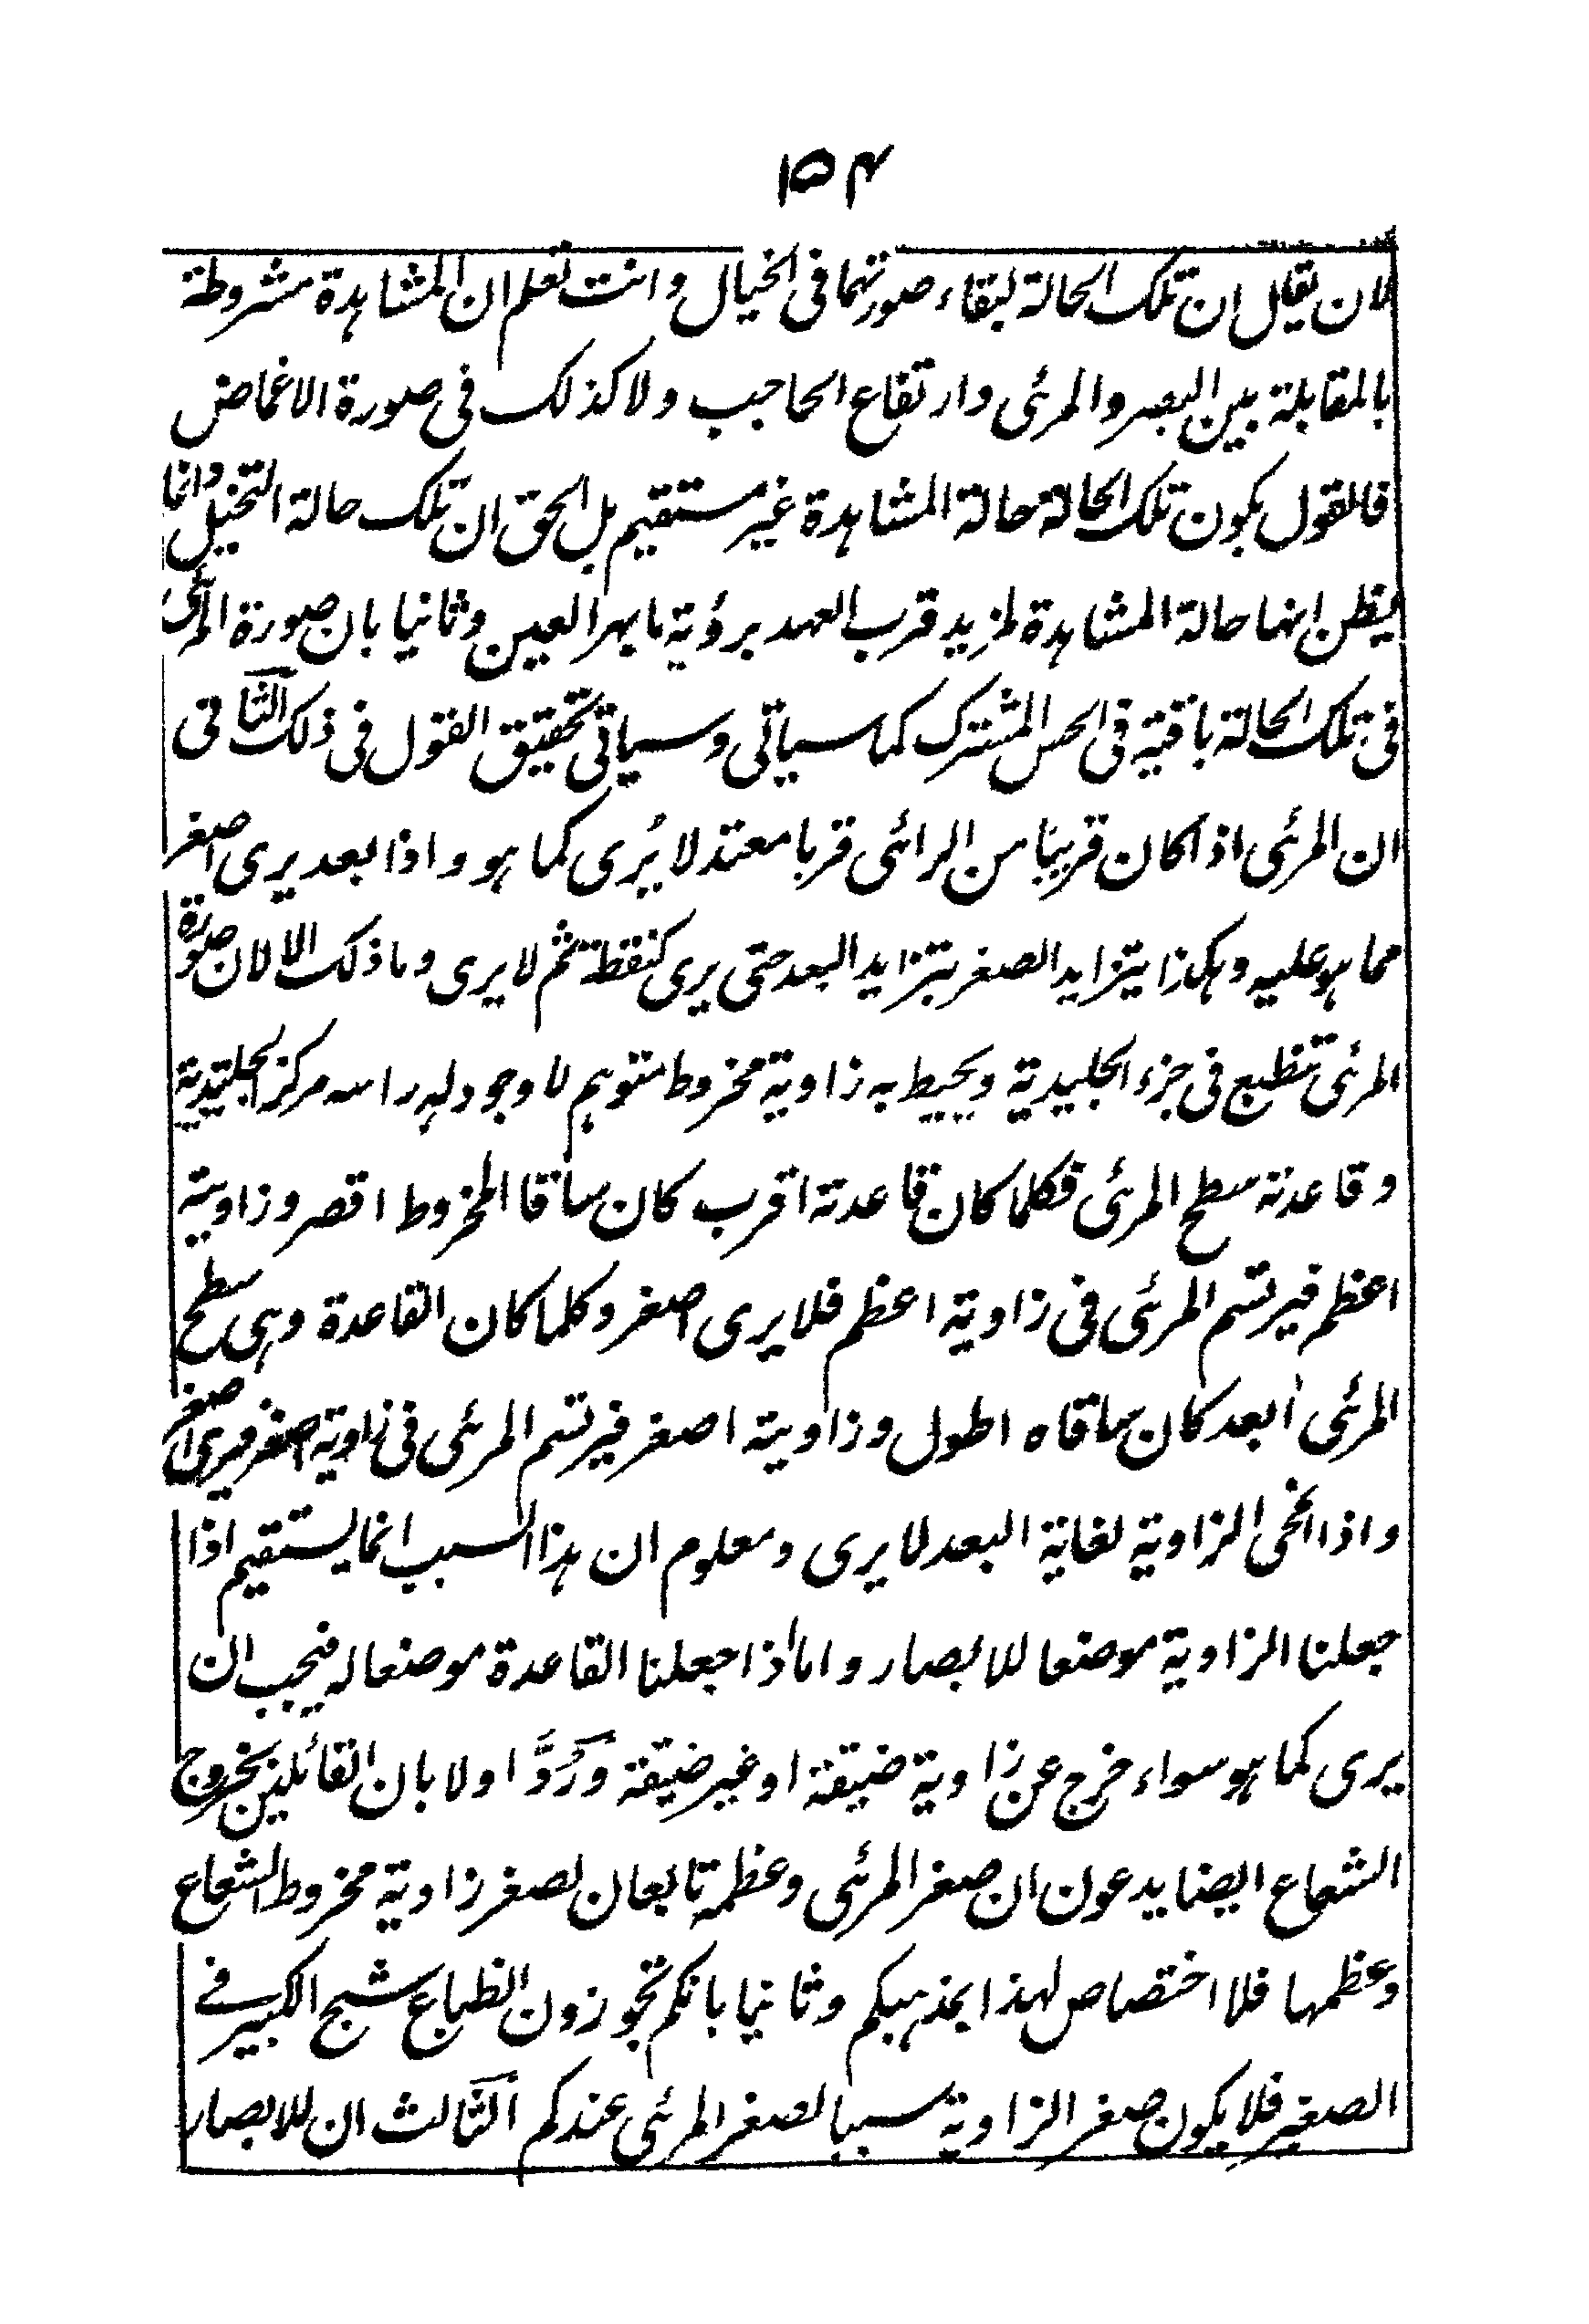 ۱۵۴
لان يقل ان تلك الحالة لبقاء صورتهما فى الخيال وانت تعلم ان المشاهدة مشروطة
بالمقابلة بين البصر والمرئى وارتفاع الحاجب ولا كذلك فى صورة الاغماض
فالقول بكون تلك الحالة حالة المشاهدة غير مستقيم بل الحق ان تلك حالة التخيل وانما
يظن انها حالة المشاهدة لمزيد قرب العهد برؤية ما بهر العين وثانيا بان صورة المرئى
فى تلك الحالة باقية فى الحس المشترك كما سياتى وسياتى تحقيق القول فى ذلك الثانى
ان المرئى اذا كان قريبا من الرائى قربا معتدلا يُرى كما هو واذا بعد يرى اصغر
مما هو عليه وهكذا يتزايد الصغر بتزايد البعد حتى يرى كنقطة ثم لا يرى وما ذلك الا لان صورة
المرئى تنطبع فى جزء الجليدية ويحيط به زاوية مخروط متوهم لا وجود له راسه مركز الجليدية
وقاعدته سطح المرئى فكلما كان قاعدته اقرب كان ساقا المخروط اقصر وزاويته
اعظم فيرتسم المرئى فى زاوية اعظم فلا يرى اصغر وكلما كان القاعدة وهى سطح
المرئى ابعد كان ساقاه اطول وزاويته اصغر فيرتسم المرئى فى زاوية اصغر فيرى اصغر
واذا انمحى الزاوية لغاية البعد لا يرى ومعلوم ان هذا السبب انما يستقيم اذا
جعلنا الزاوية موضعا للابصار واما اذا جعلنا القاعدة موضعا له فيجب ان
يرى كما هو سواء خرج عن زاوية ضيقة او غير ضيقة ورُدَّ اولا بان القائلين بخروج
الشعاع ايضا يدعون ان صغر المرئى وعظمه تابعان لصغر زاوية مخروط الشعاع
وعظمها فلا اختصاص لهذا بمذهبكم وثانيا بانكم تجوزون انطباع شبح الكبير فے
الصغير فلا يكون صغر الزاوية سببا لصغر المرئى عندكم الثالث ان للابصار